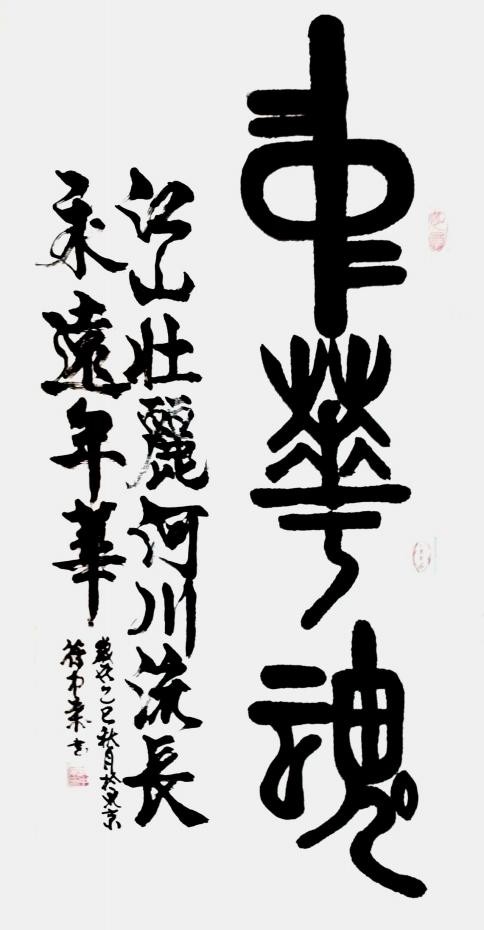 中華魂
江山壯麗河川流長
永遠年華
歲次乙巳秋月於東京
書